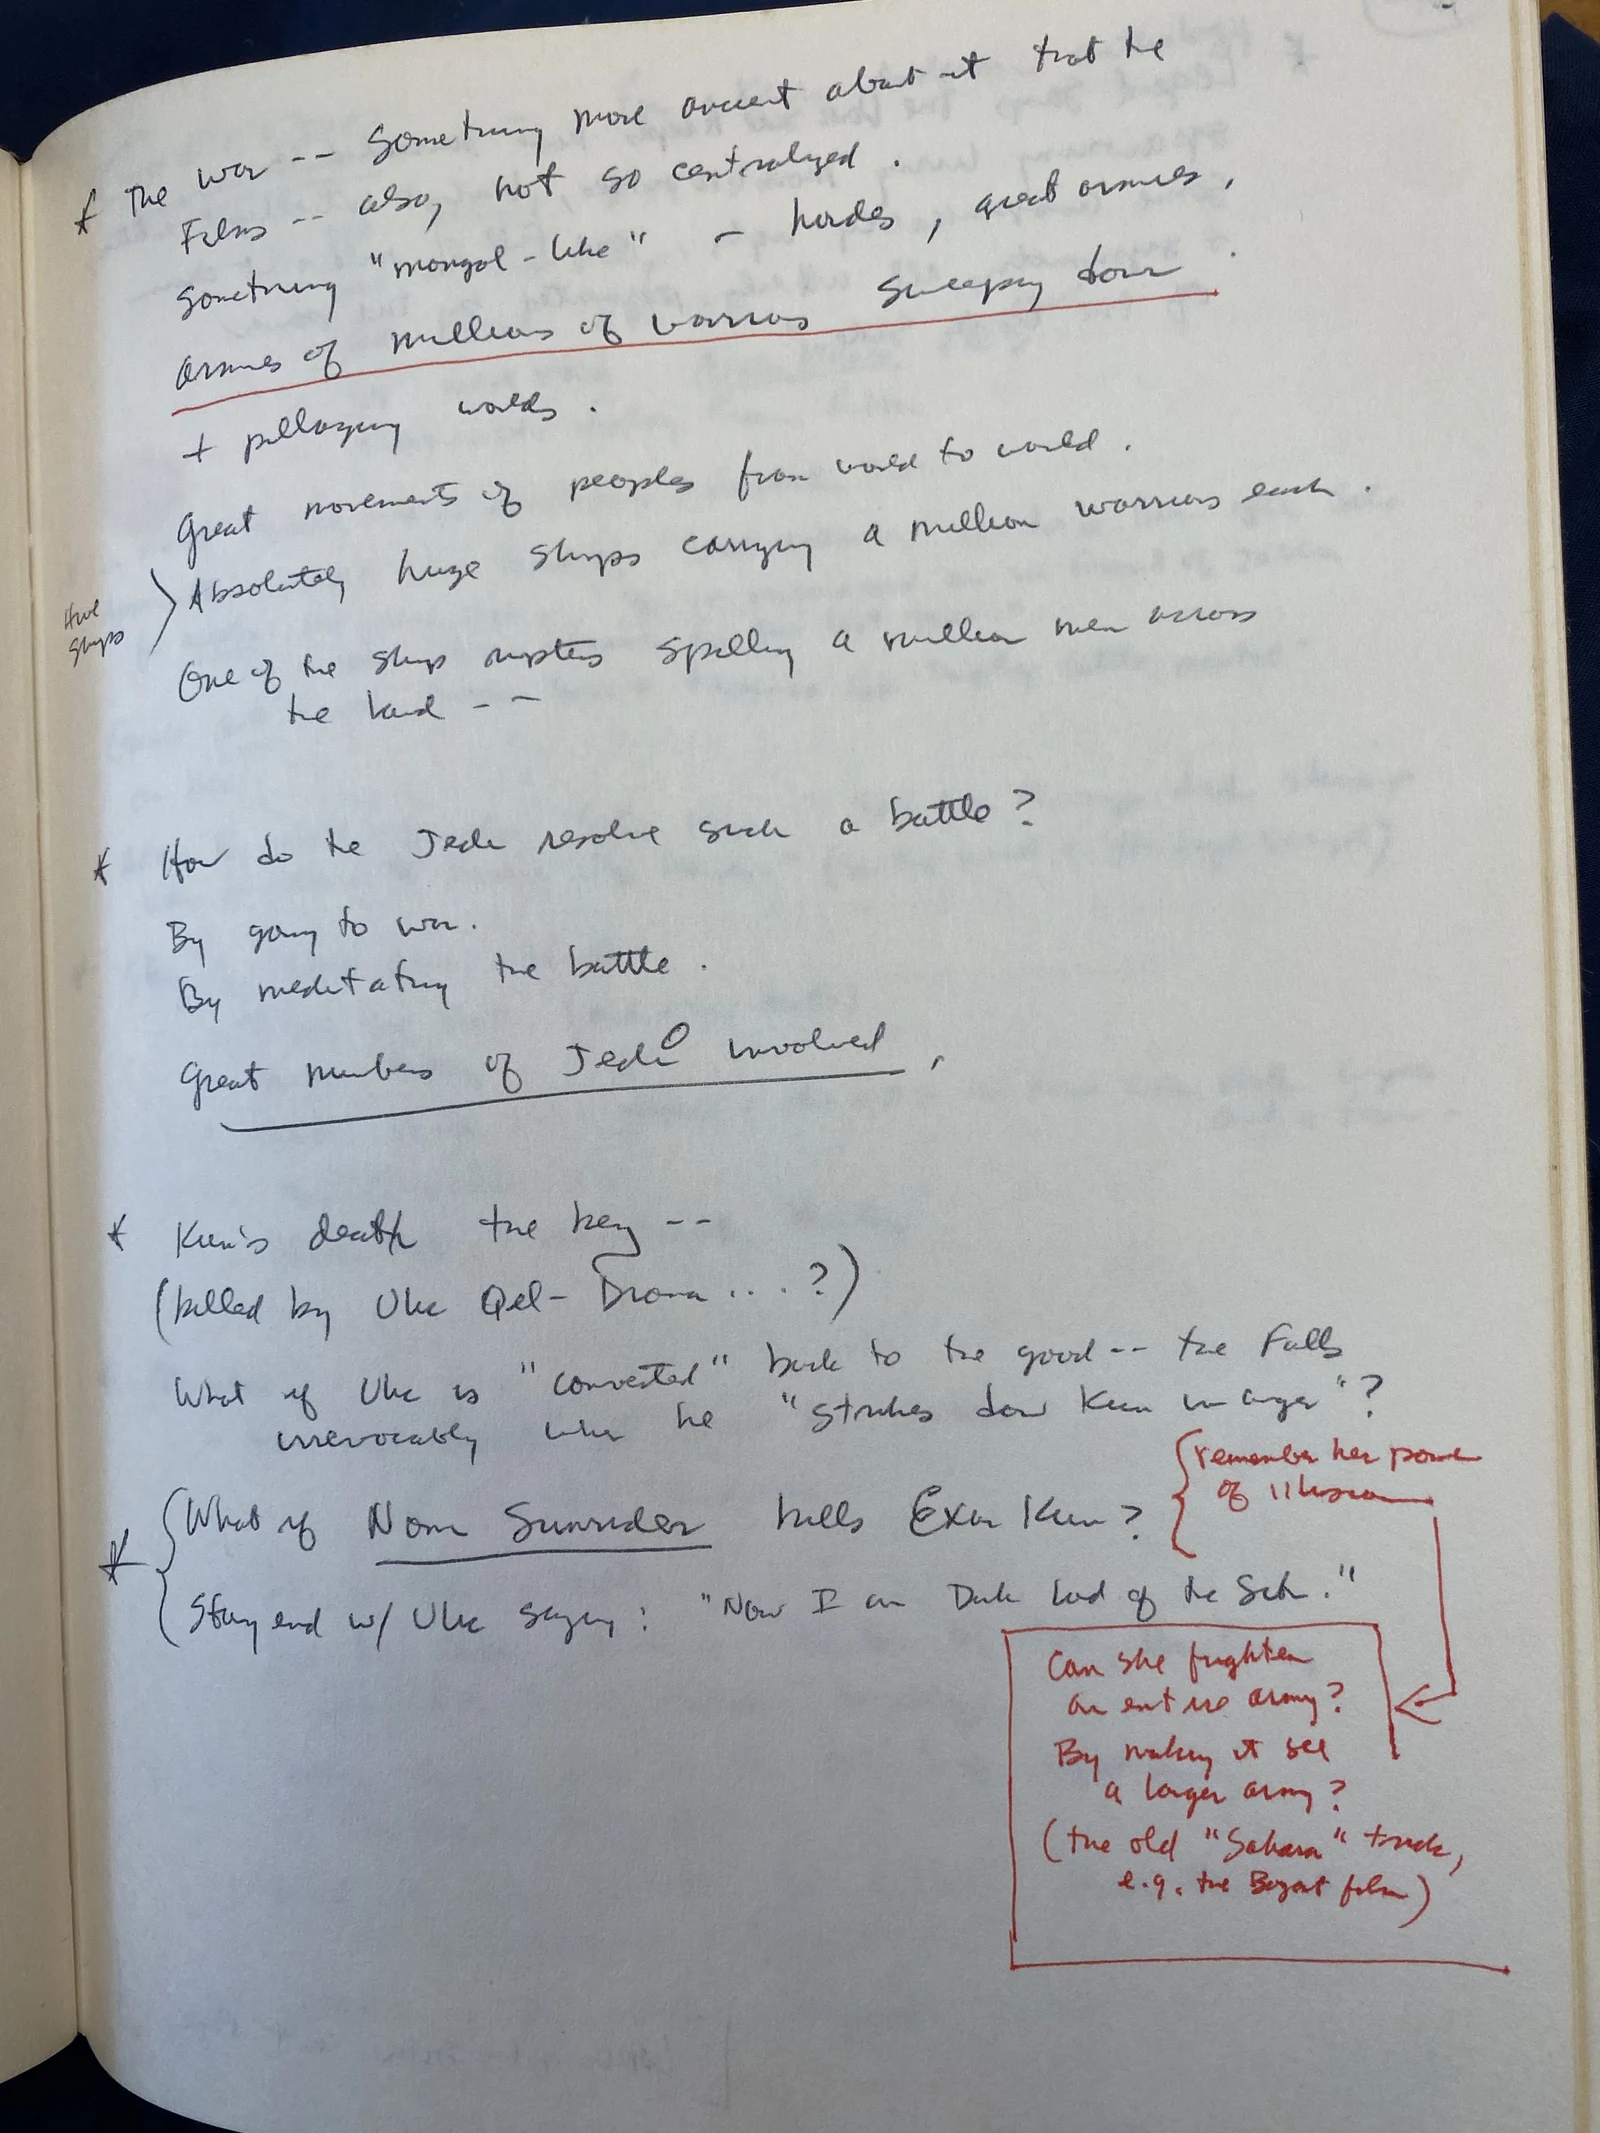 * The war -- Something more ancient about it that the
Films -- also, not so centralized.
Something "mongol-like" - hordes, great armies,
armies of millions of warriors sweeping down
+ pillaging worlds.
Great movements of peoples from world to world.
Hive
Ships
Absolutely huge ships carrying a million warriors each.
One of the ships ruptures spilling a million men across
the land --
* How do the Jedi resolve such a battle?
By going to war.
By meditating the battle.
Great numbers of Jedi involved,
* Kun's death the key --
(killed by Ulic Qel-Droma....?)
What if Ulic is "converted" back to the good -- the Falls
irrevocably when he "strikes down Kun in anger"?
* What if Nomi Sunrider kills Exar Kun?
{remember her power
of illusion
Story end w/ Ulic saying: "Now I am Dark Lord of the Sith."
Can she frighten
an entire army?
By making it see
a larger army?
(the old "Sahara" trick,
e.g. the Bogart film)